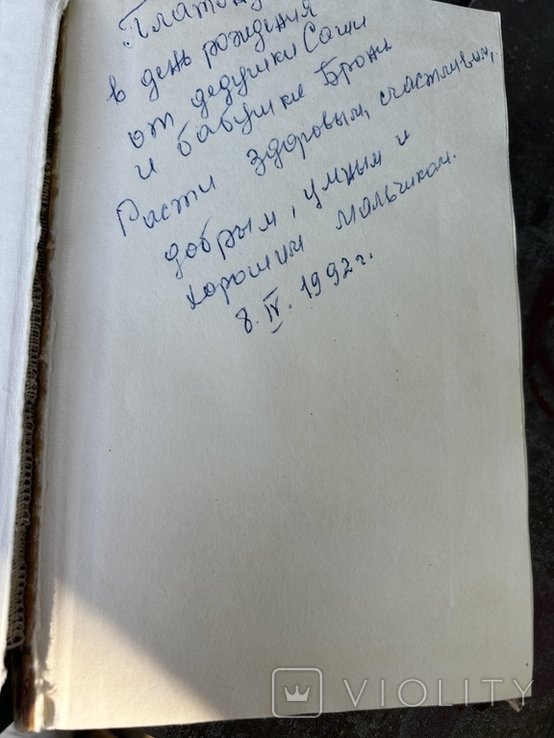 Платону
в день рождения
от дедушки Саши
и бабушки Брони
Расти здоровым, счастливым,
добрым, умным и
хорошим мальчиком.
8. IV. 1992 г.
VIOLITY